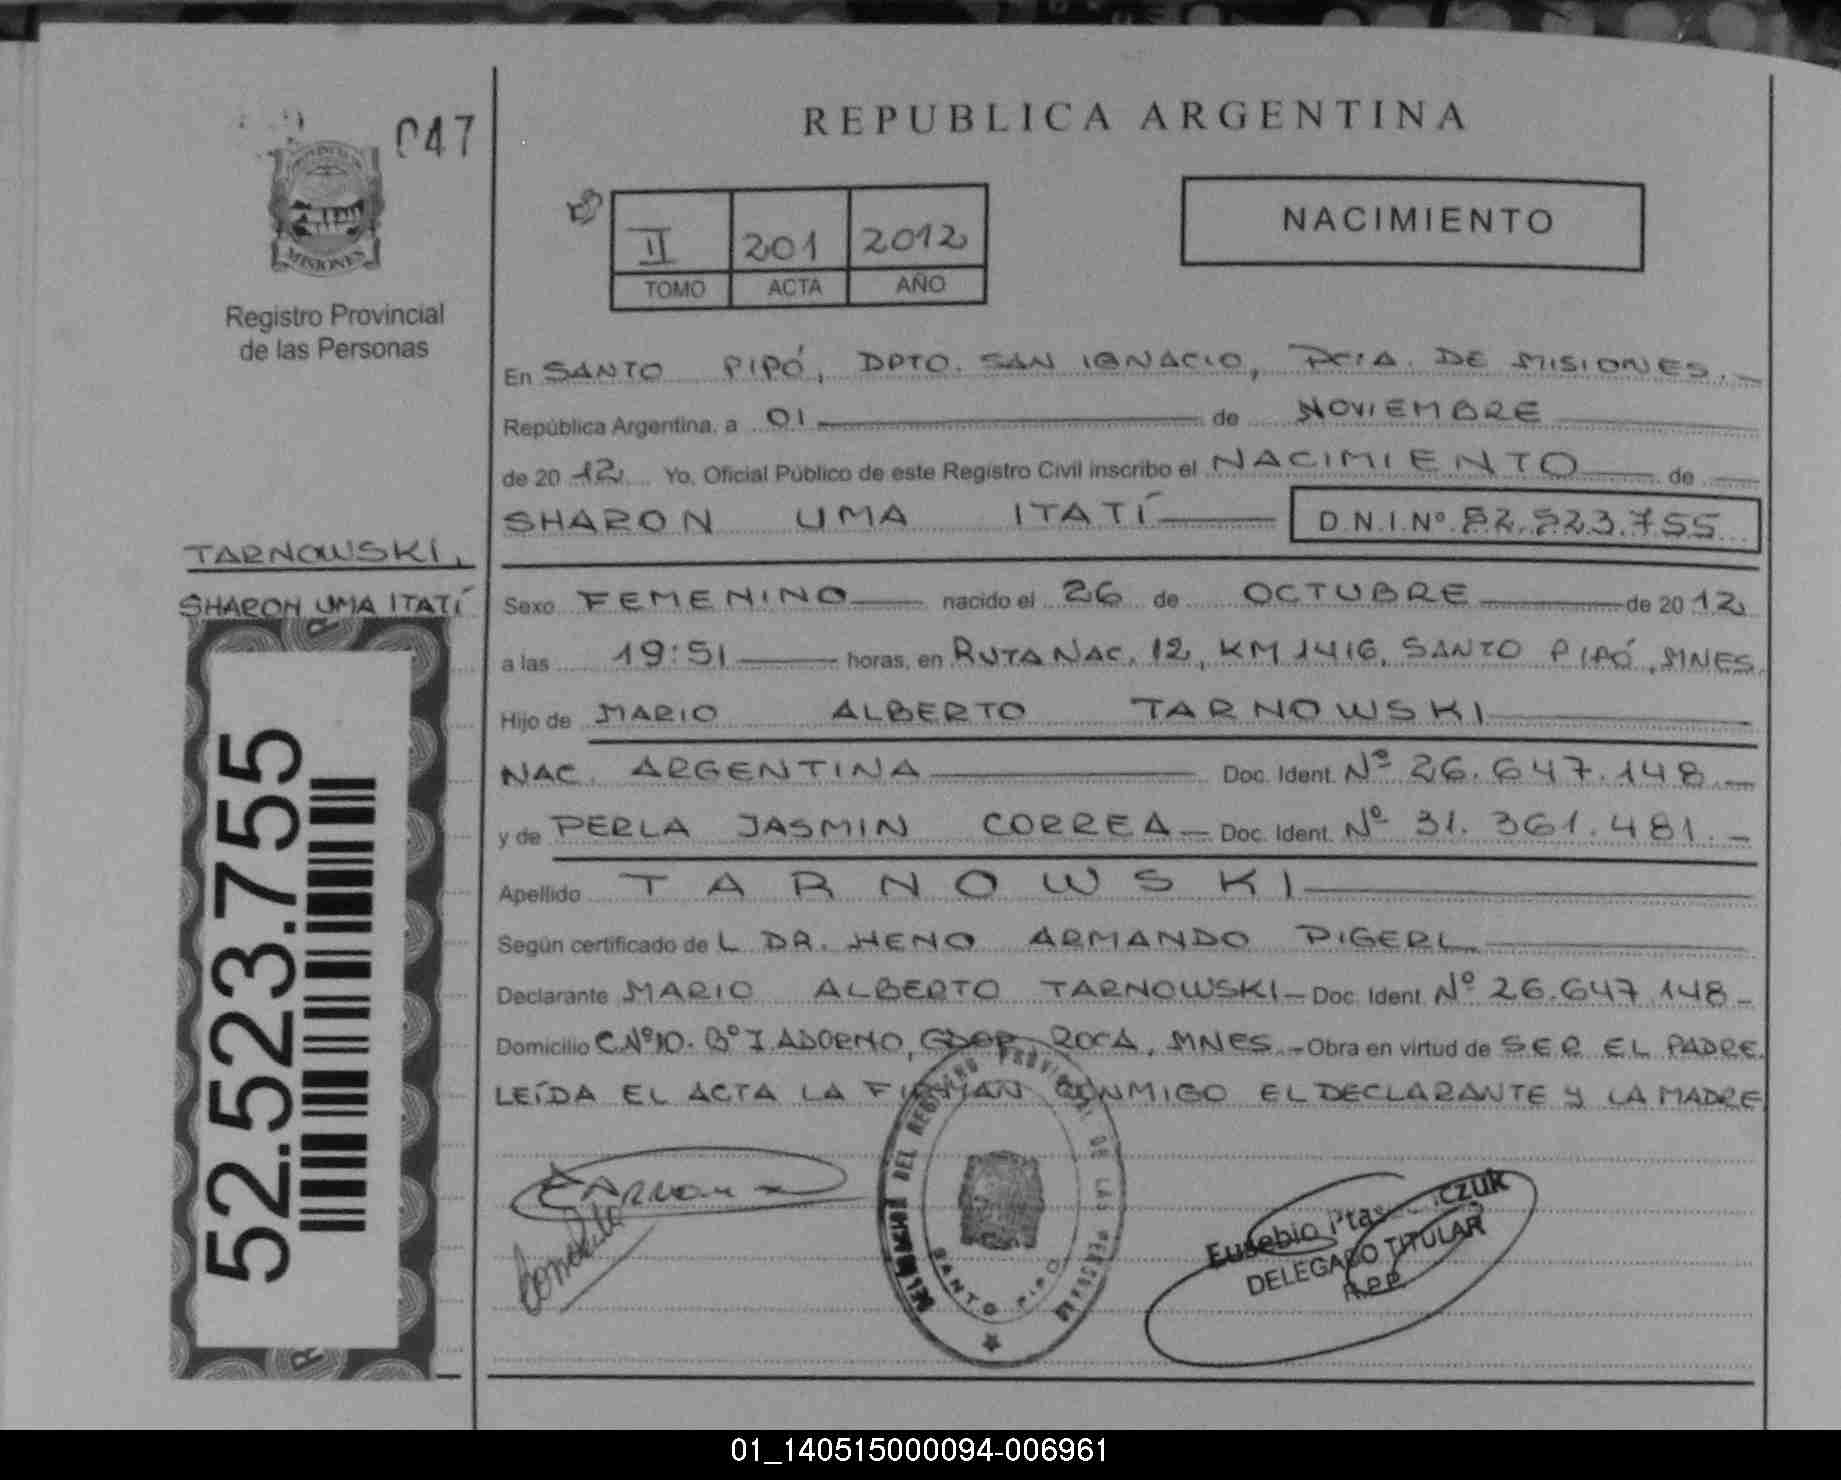 047
MISIONES
Registro Provincial
de las Personas
REPUBLICA ARGENTINA
II 201 2012
TOMO ACTA AÑO
NACIMIENTO
En SANTO PIPÓ, DPTO. SAN IGNACIO, PCIA. DE MISIONES.
República Argentina, a 01 de NOVIEMBRE
de 2012 Yo, Oficial Público de este Registro Civil inscribo el NACIMIENTO de
SHARON UMA ITATÍ D.N.I.Nº 52.523.755
TARNOWSKI,
SHARON UMA ITATÍ
Sexo FEMENINO nacido el 26 de OCTUBRE de 2012
a las 19:51 horas, en RUTA NAC. 12, KM 1416, SANTO PIPÓ, MNES.
Hijo de MARIO ALBERTO TARNOWSKI
NAC. ARGENTINA Doc. Ident. Nº 26.647.148
y de PERLA JASMIN CORREA Doc. Ident. Nº 31.361.481.
Apellido TARNOWSKI
Según certificado de L DR. HENO ARMANDO PIGERL
Declarante MARIO ALBERTO TARNOWSKI Doc. Ident. Nº 26.647.148
Domicilio C.Nº10. Bº I. ADORNO, GDOR. ROCA, MNES. Obra en virtud de SER EL PADRE.
LEÍDA EL ACTA LA FIRMAN CONMIGO EL DECLARANTE Y LA MADRE
52.523.755
DELEGACION DEL REGISTRO PROVINCIAL DE LAS PERSONAS
SANTO PIPO
Eusebio
DELEGADO TITULAR
R.P.P.
01_140515000094-006961